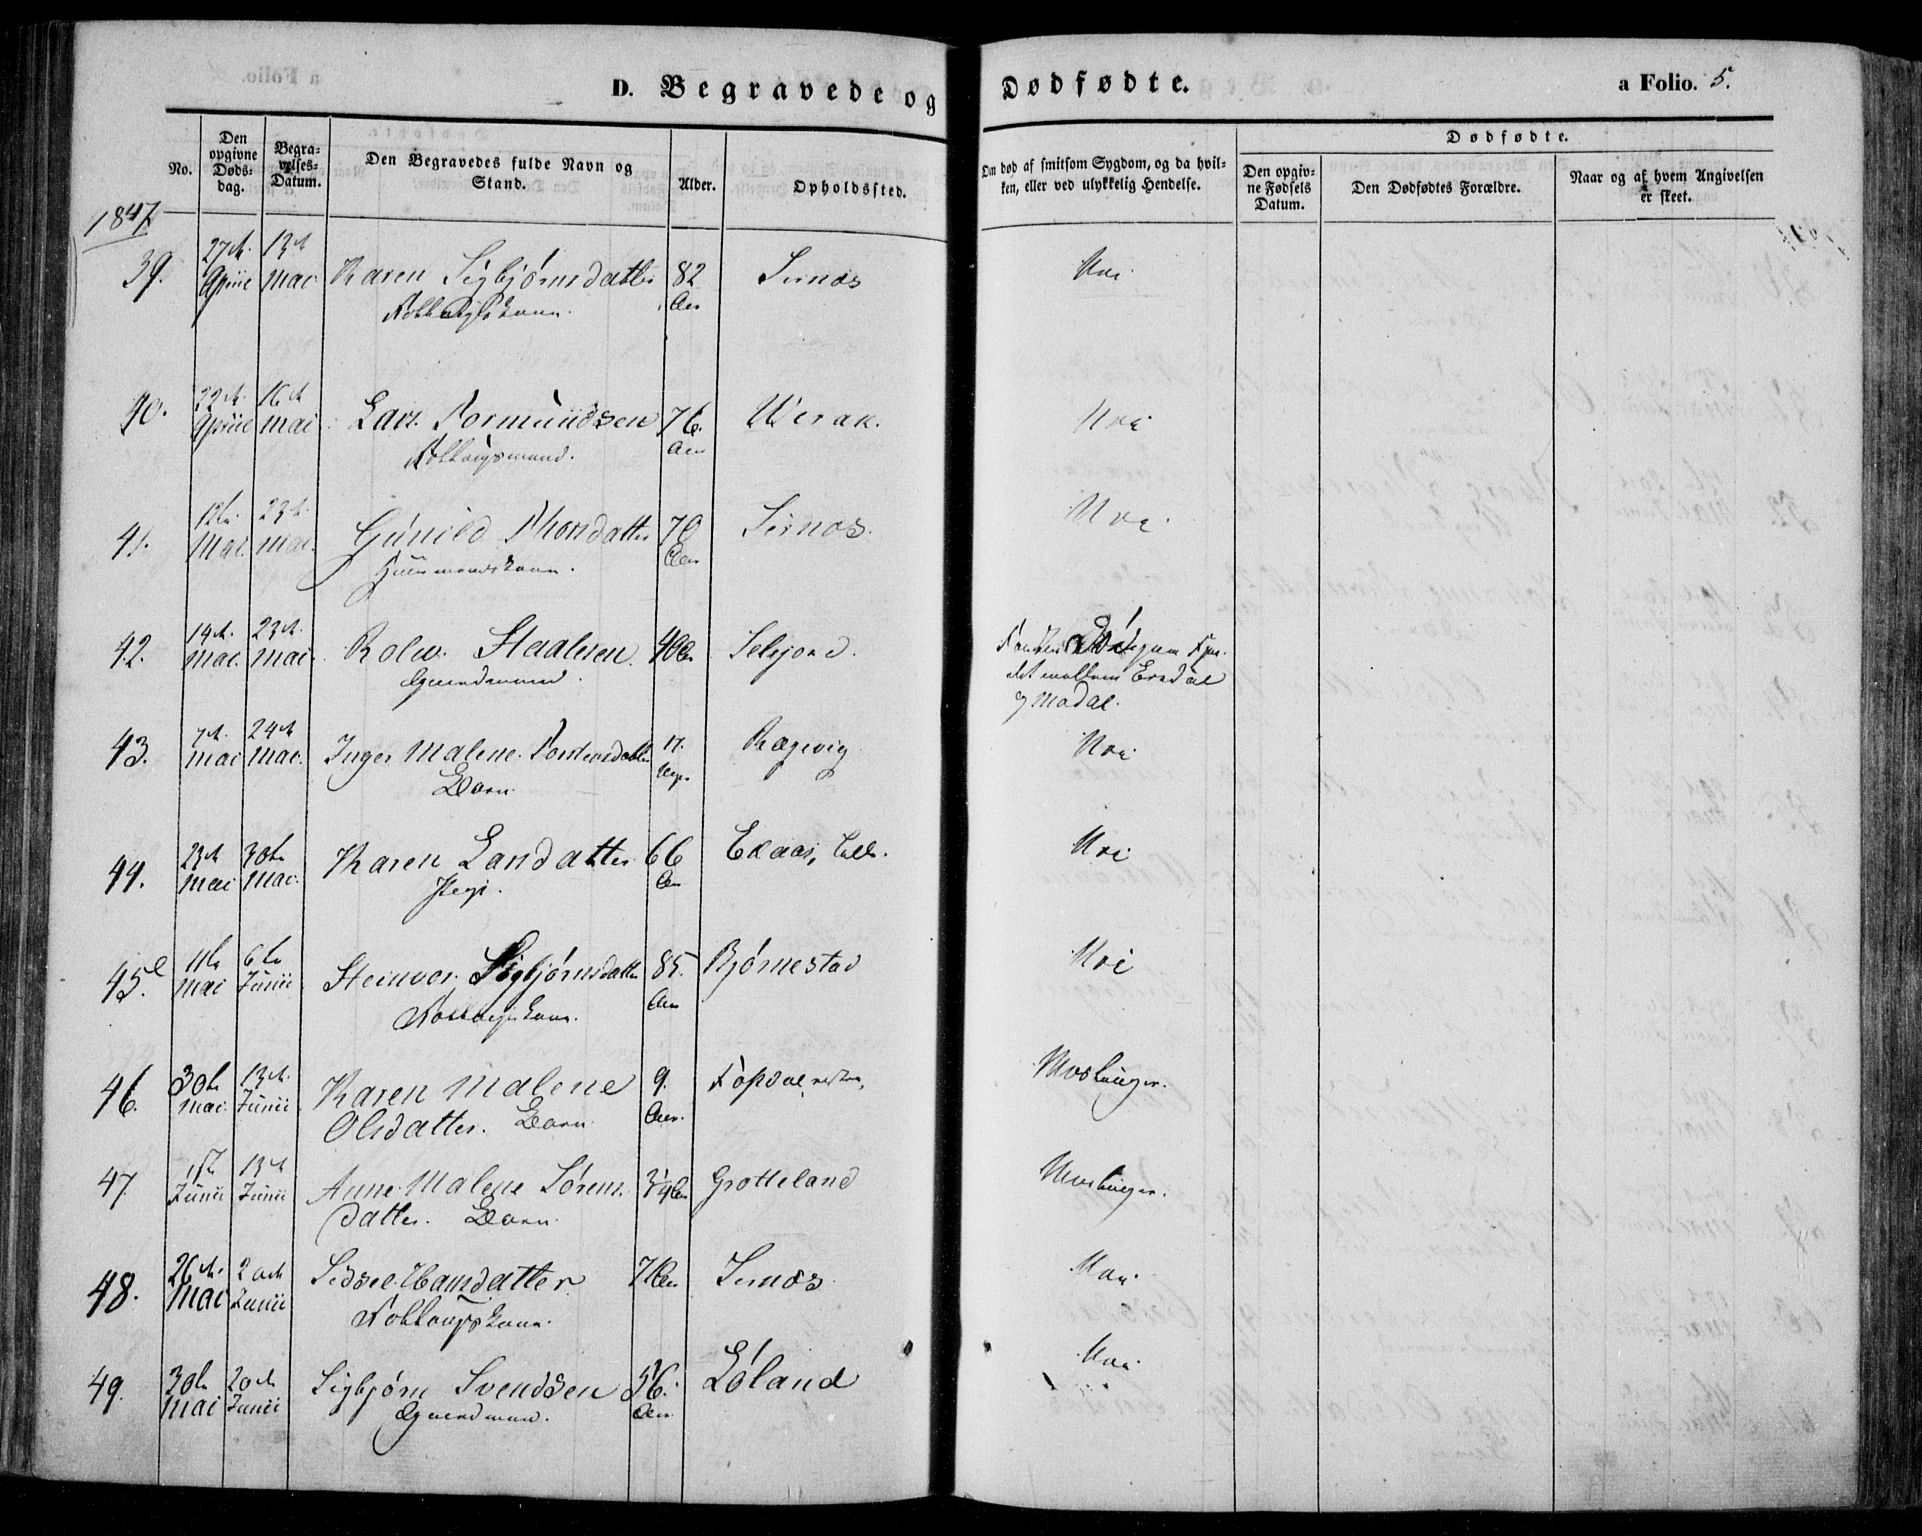 D. Begravede og Dødfødte. a Folio. 5.
No.
Den opgivne Døds-dag.
Begra-velses-Datum.
Den Begravedes fulde Navn og Stand.
Alder.
Opholdssted.
Om død af smitsom Sygdom, og da hvil-ken, eller ved ulykkelig Hendelse.
Dødfødte.
Den opgiv-ne Fødsels Datum.
Den Dødfødtes Forældre.
Naar og af hvem Angivelsen er skeet.
1847
39. 27de 13de
April Mai Karen Sigbjørnsdatter 82 Sirnæs Nei
Aar
40. 22de 16de
April Mai Lars Tormundsen 76. Werak. Nei
Aar
41. 12te 23de
Mai Mai Gunild Thorsdatter 70 Sirnæs. Nei
Huusmandskone. Aar
42. 14de 23de
Mai Mai Rolev Staalesen 40 Aar
Gaardmand.
det mellem Ersdal
og Modal.
43. 7de 24de
Mai Mai Inger Malene Torstensdatter 17. Rægevig Nei
Barn. Uger
44. 23de 30te
Mai Mai Karen Larsdatter 66 Eeaas, Nei
Pige. Aar
45. 11te 6te
Mai Junii Steinvor Sigbjørnsdatter 85. Bjørnestad Nei
Aar
46. 30te 13de
Mai Junii Karen Malene 9. Topdal Meslinger.
Olsdatter. Barn Aar.
47. 1ste 13de
Junii Junii Anne Malene Sørens- 3/4 Aar Grotteland Meslinger.
datter. Barn.
48. 26de 20de
Mai Junii Sidsel Hansdatter Sirnæs Nei
49. 30te 20de
Mai Junii Sigbjørn Svendsen 56. Løland Nei
Gaardmand. Aar